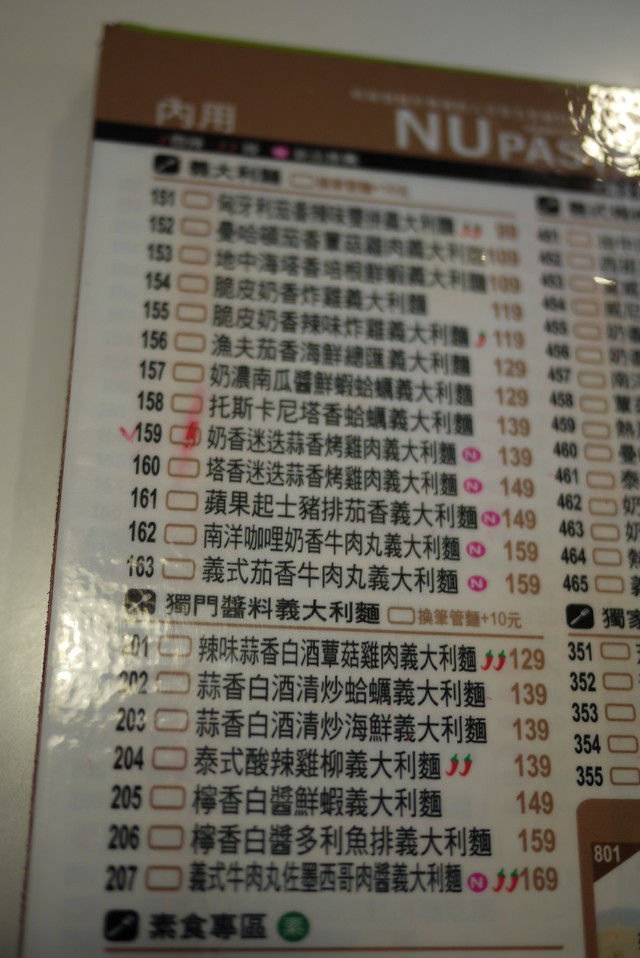 內用
NUPAS
義大利麵
151 匈牙利茄香辣味雙拼義大利麵 99
152 曼哈頓茄香蕈菇雞肉義大利麵 109
153 地中海塔香培根鮮蝦義大利麵 109
154 脆皮奶香炸雞義大利麵 119
155 脆皮奶香辣味炸雞義大利麵 119
156 漁夫茄香海鮮總匯義大利麵 129
157 奶濃南瓜醬鮮蝦蛤蠣義大利麵 129
158 托斯卡尼塔香蛤蠣義大利麵 139
159 奶香迷迭蒜香烤雞肉義大利麵 N 139
160 塔香迷迭蒜香烤雞肉義大利麵 N 149
161 蘋果起士豬排茄香義大利麵 N 149
162 南洋咖哩奶香牛肉丸義大利麵 N 159
163 義式茄香牛肉丸義大利麵 N 159
獨門醬料義大利麵 換筆管麵+10元
201 辣味蒜香白酒蕈菇雞肉義大利麵 129
202 蒜香白酒清炒蛤蠣義大利麵 139
203 蒜香白酒清炒海鮮義大利麵 139
204 泰式酸辣雞柳義大利麵 139
205 檸香白醬鮮蝦義大利麵 149
206 檸香白醬多利魚排義大利麵 159
207 義式牛肉丸佐墨西哥肉醬義大利麵 N 169
素食專區 素
451
452
453
454
455
456
457
458
459
460
461
462
463
464
465
獨家
351
352
353
354
355
801